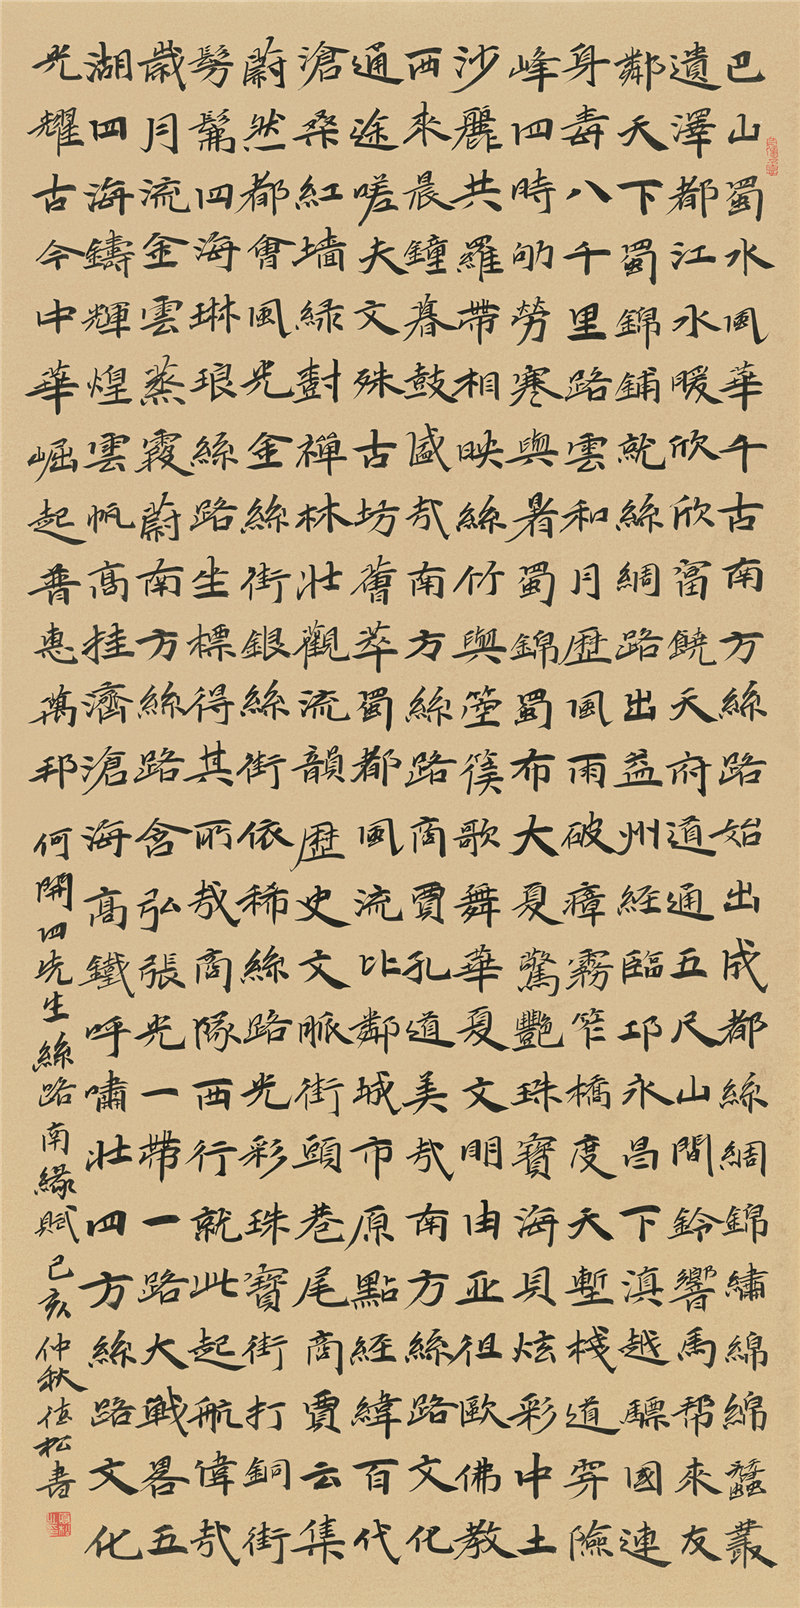 巴山蜀水風華千古南方絲路始出成都絲綢錦繡綿綿蠶叢
遺澤都江水暖欣欣富饒天府道通五尺山間鈴響馬幫來友
鄰天下蜀錦鋪就絲綢路出益州經臨邛永昌下滇越驃國連
身毒八千里路雲和月歷風雨破瘴霧笮橋度天塹棧道穿險
峰四時劬勞寒與暑蜀錦蜀布大夏驚艷珠寶海貝炫彩中土
沙麗共羅帶相映絲竹與箜篌歌舞華夏文明由亚徂歐佛教
西來晨鐘暮鼓盛哉南方絲路商賈孔道美哉南方絲路文化
通途嗟夫文殊古坊薈萃蜀都風流比鄰城市原點經緯百代
滄桑紅墙綠對禪林壯觀流韻歷史文脈街頭巷尾商賈云集
蔚然都會風光金絲街銀絲街依稀絲路光彩珠寶街打銅街
髣髴四海琳琅絲路坐標得其所哉商隊西行就此起航偉哉
歲月流金雲蒸霞蔚南方絲路含弘張光一帶一路大戰畧五
湖四海鑄輝煌雲帆高挂濟滄海高鐵呼嘯壯四方絲路文化
光耀古今中華崛起普惠萬邦 何開四先生絲路南緣賦 己亥仲秋松書